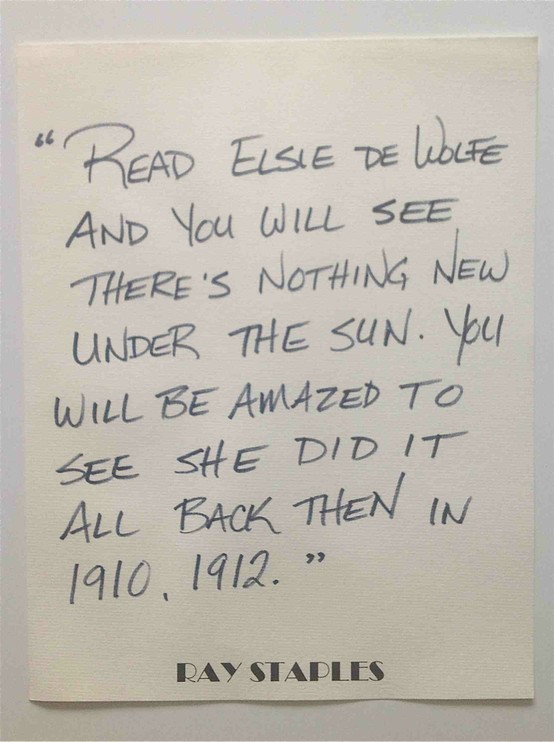 “ READ ELSIE DE WOLFE
AND YOU WILL SEE
THERE'S NOTHING NEW
UNDER THE SUN. YOU
WILL BE AMAZED TO
SEE SHE DID IT
ALL BACK THEN IN
1910, 1912. ”
RAY STAPLES